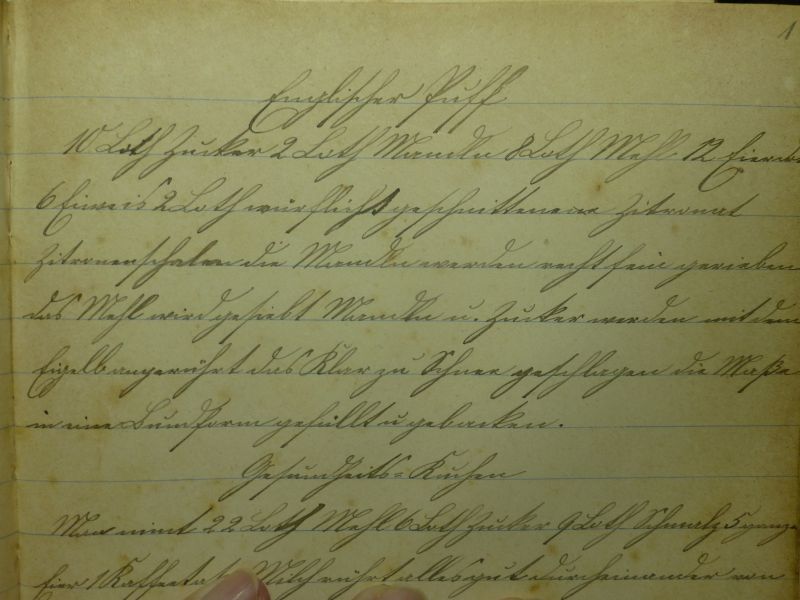 1
Englischer Puff
10 Loth Zucker 2 Loth Mandln 8 Loth Mehl 12 Eierd
6 Eiweis 2 Loth würflicht geschnittenen Zitronat
Zitronenschalen die Mandln werden recht fein gerieben
das Mehl wird gesiebt Mandln u. Zucker werden mit dem
Eigelb angerührt das Klar zu Schnee geschlagen die Maße
in eine Bundform gefüllt u gebacken.
Gesundheits=Kuchen
Man nimt 22 Loth Mehl 6 Loth Zucker 9 Loth Schmalz 5 ganze
Eier 1 Kaffeetaß Milch rührt alles gut durcheinander von